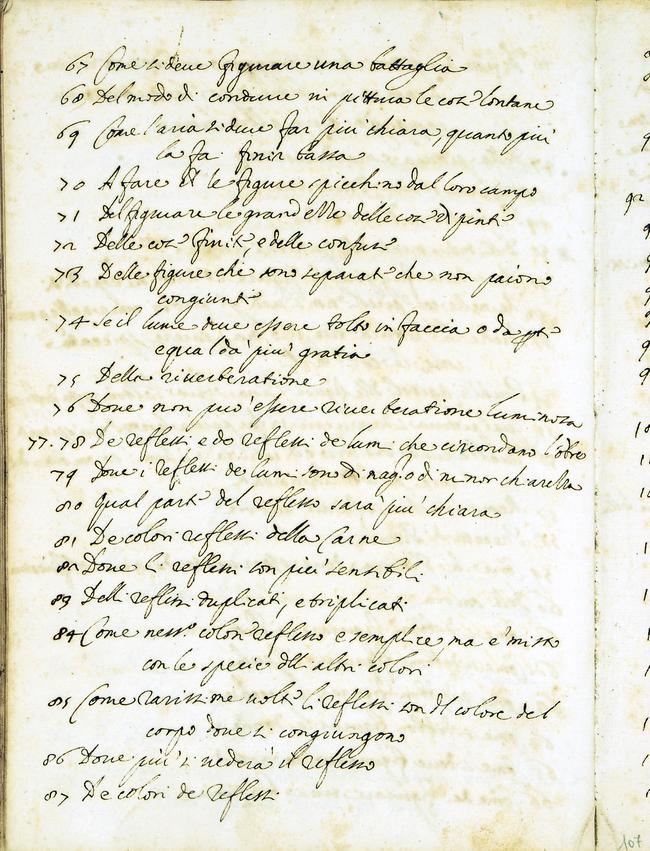 67 Come si deve figurare una battaglia
68 Del modo di condurre in pittura le cose lontane
69 Come l'aria si deve far più chiara, quanto più
la fai finir bassa
70 A fare che le figure spicchino dal loro campo
71 Del figurare le grandezze delle cose dipinte
72 Delle cose finite, e delle confuse
73 Delle figure che sono separate che non paiono
congiunte
74 Se il lume deve essere tolto in faccia o da pte
e qual dà più gratia
75 Della riverberatione
76 Dove non può essere riverberatione luminosa
77. 78 De reflessi e do reflessi de lumi che circondano l'ōbre
79 Dove i reflessi de lumi sono di magior o di minor chiarezza
80 qual parte del reflesso sarà più chiara
81 De colori reflessi della Carne
82 Dove li reflessi son più sensibili
83 Delli reflessi duplicati, e triplicati
84 Come ness.o colore reflesso e semplice, ma è misto
con le specie delli altri colori
85 Come rarissime volte li reflessi son del colore del
corpo dove si congiungono
86 Dove più si vederà il reflesso
87 De colori de reflessi
107